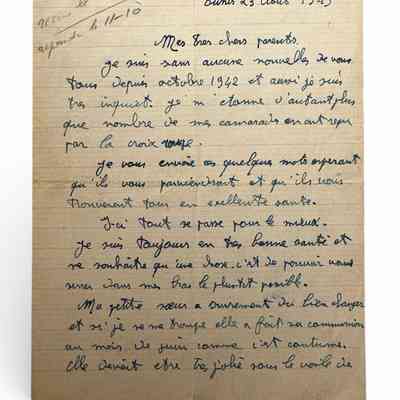 répondu le 11-10
23 Août 1943
Mes très chers parents.
Je suis sans aucune nouvelles de vous
tous depuis octobre 1942 et aussi je suis
très inquiet. Je m'étonne d'autant plus
que nombre de mes camarades en ont reçu
par la croix rouge.
Je vous envoie ces quelques mots espérant
qu'ils vous parviendront et qu'ils vous
trouveront tous en exellente santé.
Ici tout se passe pour le mieux.
Je suis toujours en très bonne santé et
ne souhaite qu'une chose. c'est de pouvoir vous
serrer dans mes bras le plustôt possible.
Ma petite sœur a surement dû bien changer
et si je ne me trompe elle a fait sa communion
au mois de juin comme c'est coutume.
Elle devait être très jolie sous le voile de